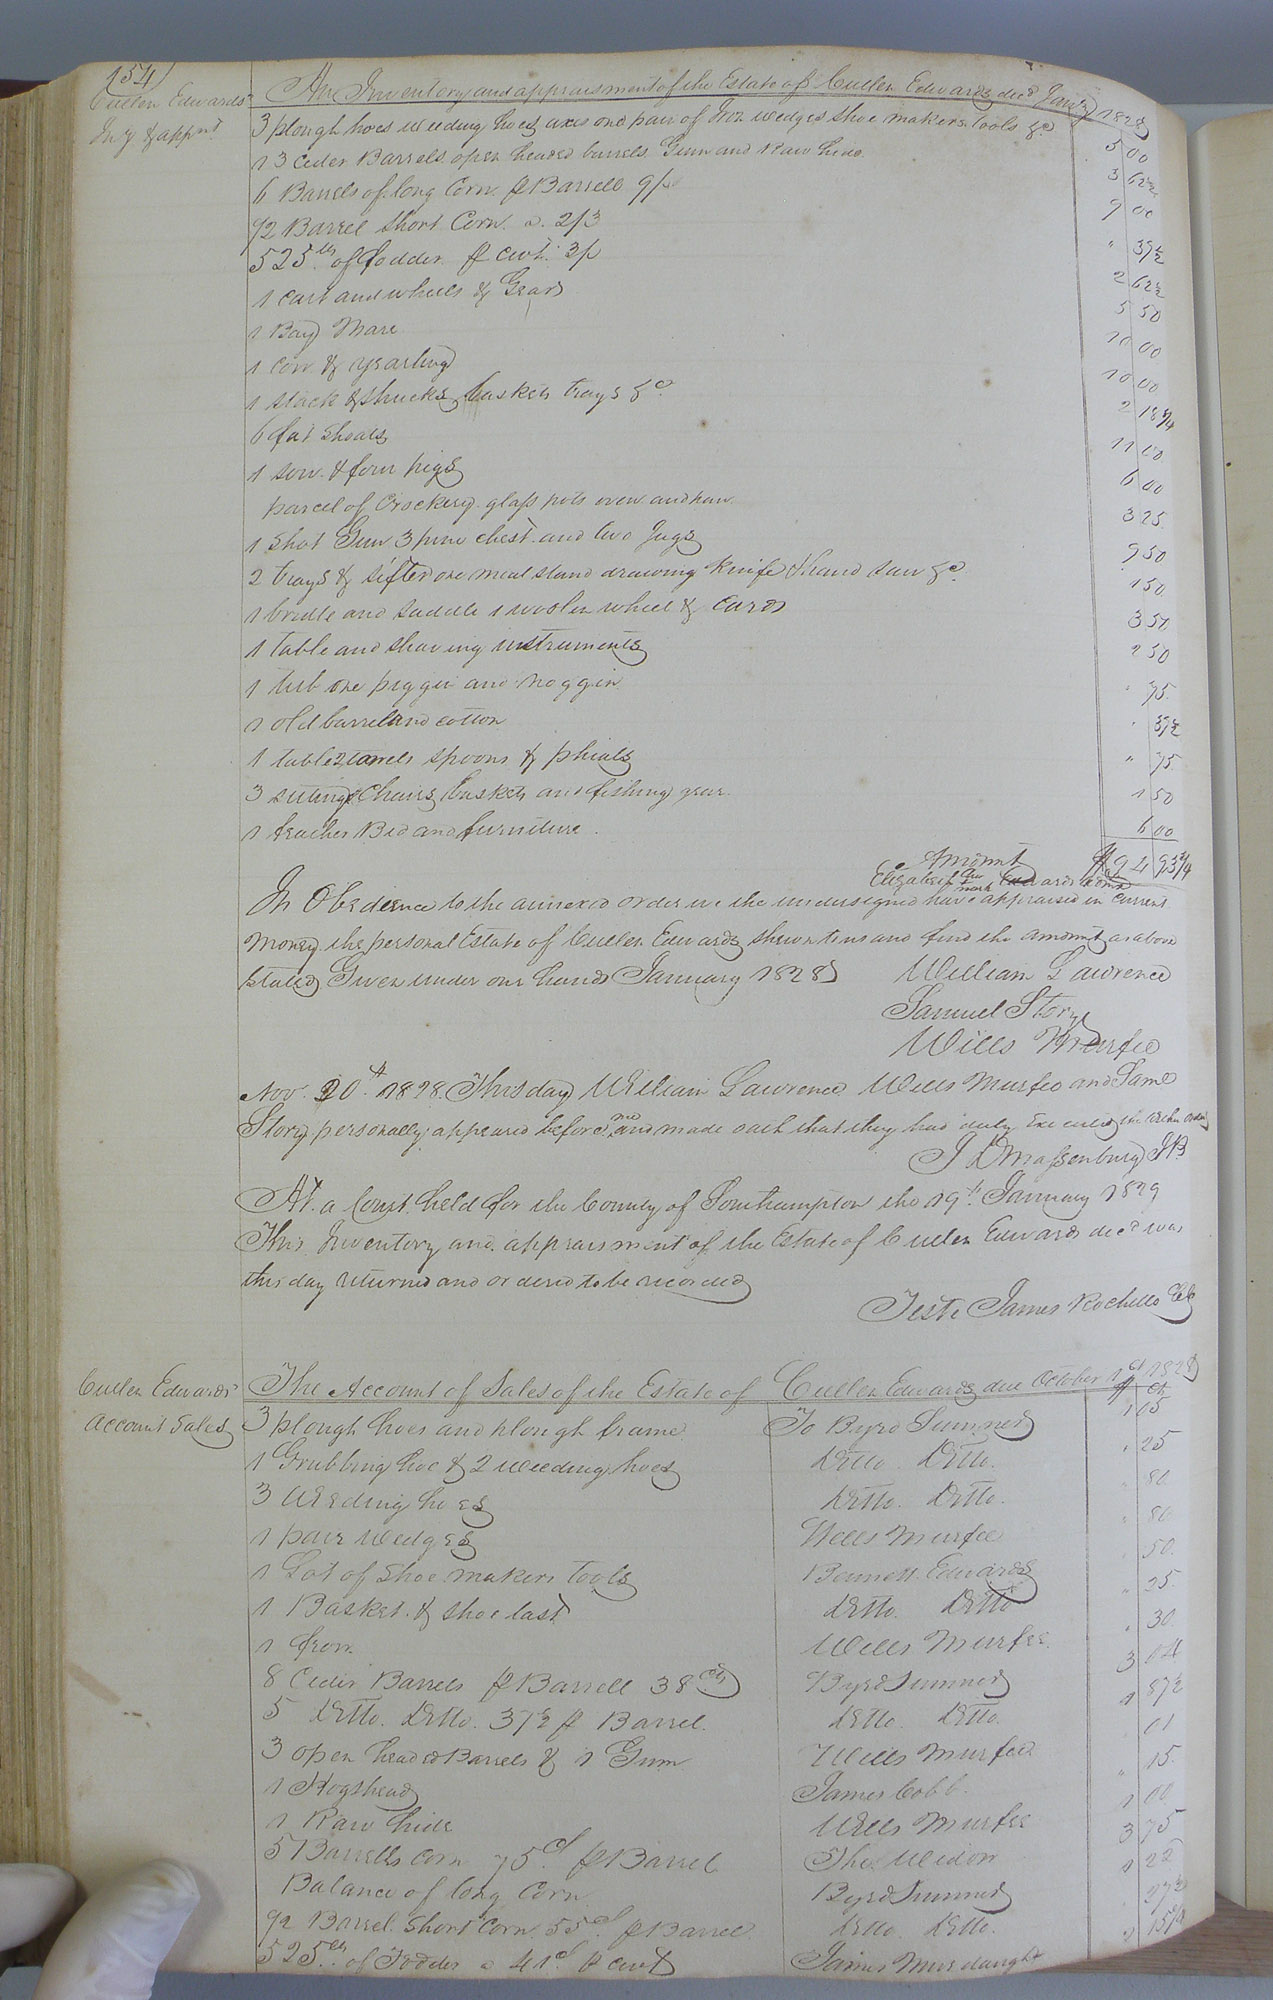 154
Cullen Edwards
Iny & apprmt
An Inventory and appraisment of the Estate of Cullen Edwards decd Jany 1828
3 plough hoes weeding hoes axes one pair of Iron wedges shoe makers tools &c 5 00
13 Ceder Barrels open headed barrels Gum and Raw hide 3 62½
6 Barrels of long Corn ⅌ Barrell 9/ 9 00
½ Barrel Short Corn a 2/3 " 37½
525 lb of fodder ⅌ cwt 3/ 2 62½
1 cart and wheels & Gear 5 50
1 Bay Mare 10 00
1 cow & yearling 10 00
1 stack & shucks baskets trays &c 2 18¾
6 fat Shoats 11 00
1 sow & four pigs 6 00
parcel of Crockery glass pots oven and pan 3 25
1 Shot Gun 3 pine chest and two Jugs 9 50
2 trays & sifter one meal stand drawing knife & hand saw &c 1 50
1 bridle and saddle 1 woolen wheel & cards 3 50
1 table and shaving instruments 2 50
1 tub one piggin and noggin " 75
1 old barrel and cotton " 37½
1 table 2 towels spoons & phials " 75
3 setting Chairs baskets and fishing gear 1 50
1 feather Bed and furniture 6 00
Amount $94 93¾
Elizabeth her mark Edwards
In Obedience to the annexed order we the undersigned have appraised in current
money the personal Estate of Cullen Edwards shewn to us and find the amount as above
stated Given under our hands January 1828
William Lawrence
Samuel Story
Wills Murfee
Nov. 20th 1828 This day William Lawrence Wills Murfee and Saml
Story personally appeared before me and made oath that they had duly executed the within order
J D Massenburg J P
At a Court held for the County of Southampton the 19th January 1829
This Inventory and appraisment of the Estate of Cullen Edwards decd was
this day returned and ordered to be recorded
Teste James Rochelle CC
Cullen Edwards
Account Sales
The Account of Sales of the Estate of Cullen Edwards due October 1st 1828
$ Cts
3 plough hoes and plough frame To Byrd Sumner 1 05
1 Grubbing hoe & 2 weeding hoes Ditto Ditto " 25
3 Weeding hoes Ditto Ditto " 80
1 pair wedges Wills Murfee " 80
1 Lot of shoe makers tools Bennett Edwards " 50
1 Basket & shoe last Ditto Ditto " 25
1 Wills Murfee " 30
8 Ceder Barrels ⅌ Barrell 38 cts Byrd Sumner 3 04
5 Ditto Ditto 37½ ⅌ Barrel Ditto Ditto 1 87½
3 open headed Barrels & 1 Gum Wills Murfee 01
1 Hogshead James Cobb " 15
1 Raw hide Wills Murfee 1 00
5 Barrells Corn 75 c ⅌ Barrel The Widow 3 75
Balance of long Corn Byrd Sumner 1 22
½ Barrel Short Corn 55 c ⅌ Barrel Ditto Ditto 27½
525 lb of Fodder a 41 c ⅌ cwt James Murdaugh 2 15¼